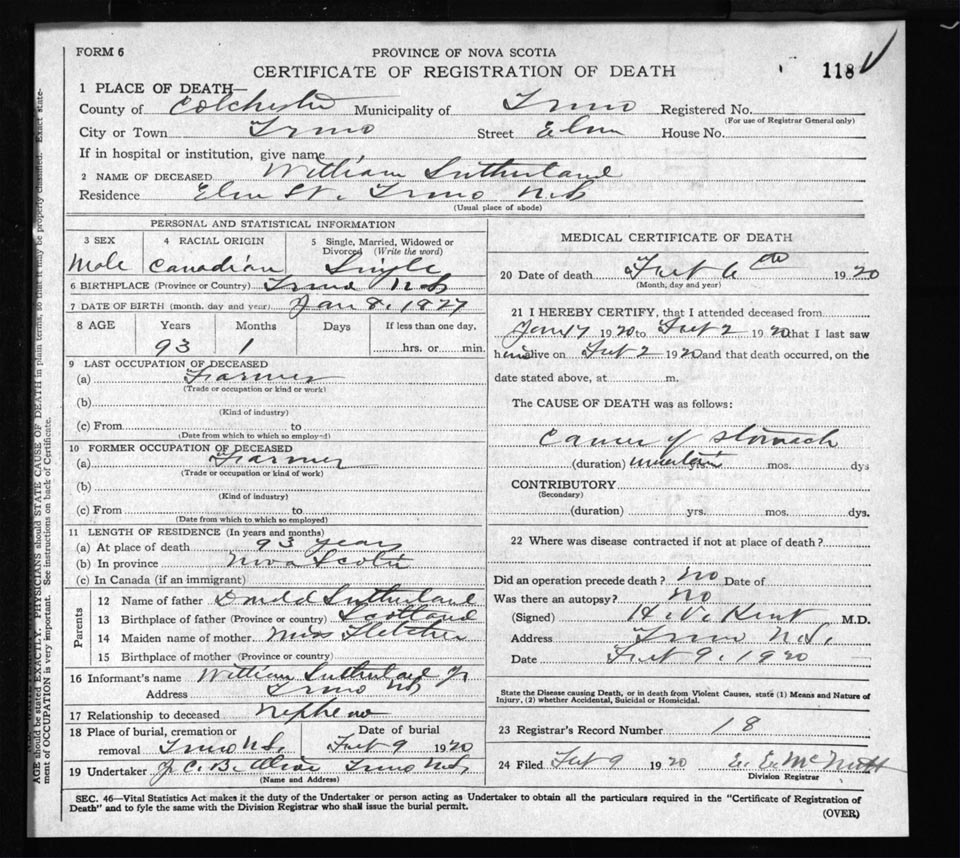 FORM 6
PROVINCE OF NOVA SCOTIA
CERTIFICATE OF REGISTRATION OF DEATH
118
1 PLACE OF DEATH—
County of Colchester Municipality of Truro Registered No.
(For use of Registrar General only)
City or Town Truro Street Elm House No.
If in hospital or institution, give name
2 NAME OF DECEASED William Sutherland
Residence Elm St. Truro N.S.
(Usual place of abode)
PERSONAL AND STATISTICAL INFORMATION
3 SEX 4 RACIAL ORIGIN 5 Single, Married, Widowed or
Divorced (Write the word)
Male Canadian Single
6 BIRTHPLACE (Province or Country) Truro N.S.
7 DATE OF BIRTH (month, day and year) Jan 8, 1827
8 AGE Years Months Days If less than one day,
93 1 hrs. or min.
9 LAST OCCUPATION OF DECEASED
(a) Farmer
(Trade or occupation or kind or work)
(b)
(Kind of industry)
(c) From to
(Date from which to which so employed)
10 FORMER OCCUPATION OF DECEASED
(a) Farmer
(Trade or occupation or kind of work)
(b)
(Kind of industry)
(c) From to
(Date from which to which so employed)
11 LENGTH OF RESIDENCE (In years and months)
(a) At place of death 93 years
(b) In province Nova Scotia
(c) In Canada (if an immigrant)
Parents
12 Name of father Sutherland
13 Birthplace of father (Province or country) Scotland
14 Maiden name of mother Miss Fletcher
15 Birthplace of mother (Province or country)
16 Informant's name William Sutherland Jr
Address Truro N.S.
17 Relationship to deceased Nephew
18 Place of burial, cremation or Date of burial
removal Truro N.S. Feb 9 1920
19 Undertaker J. C. B. Truro N.S.
(Name and Address)
MEDICAL CERTIFICATE OF DEATH
20 Date of death Feb 6th 1920
(Month, day and year)
21 I HEREBY CERTIFY, that I attended deceased from
Jan 17 1920 to Feb 2 1920 that I last saw
him alive on Feb 2 1920 and that death occurred, on the
date stated above, at m.
The CAUSE OF DEATH was as follows:
Cancer of stomach
(duration) uncertain mos. dys
CONTRIBUTORY
(Secondary)
(duration) yrs. mos. dys.
22 Where was disease contracted if not at place of death?
Did an operation precede death? No Date of
Was there an autopsy? No
(Signed) H. V. Kent M.D.
Address Truro N.S.
Date Feb 9, 1920
State the Disease causing Death, or in death from Violent Causes, state (1) Means and Nature of
Injury, (2) whether Accidental, Suicidal or Homicidal.
23 Registrar's Record Number 18
24 Filed Feb 9 1920 E. E. McNutt
Division Registrar
SEC. 46—Vital Statistics Act makes it the duty of the Undertaker or person acting as Undertaker to obtain all the particulars required in the "Certificate of Registration of
Death" and to fyle the same with the Division Registrar who shall issue the burial permit.
(OVER)
AGE should be stated EXACTLY. PHYSICIANS should STATE CAUSE OF DEATH in plain terms, so that it may be properly classified. Exact state-
ment of OCCUPATION is very important. See instructions on back of Certificate.